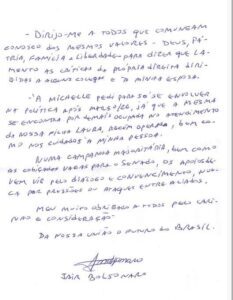 - DIRIJO-ME A TODOS QUE COMUNGAM
CONOSCO DOS MESMOS VALORES - DEUS, PÁ-
TRIA, FAMÍLIA E LIBERDADE - PARA DIZER QUE LA-
MENTO AS CRÍTICAS DA PRÓPRIA DIREITA DIRI-
GIDAS A ALGUNS COLEGAS E A MINHA ESPOSA.
- A MICHELLE PEDI PARA SÓ SE ENVOLVER
NA POLÍTICA APÓS MARÇO/26, JÁ QUE A MESMA
SE ENCONTRA POR DEMAIS OCUPADA NO ATENDIMENTO
DA NOSSA FILHA LAURA, RECÉM OPERADA, BEM CO-
MO NOS CUIDADOS À MINHA PESSOA.
NUMA CAMPANHA MAJORITÁRIA, BEM COMO
AS COBIÇADAS VAGAS PARA O SENADO, OS APOIOS DE-
VEM VIR PELO DIÁLOGO E CONVENCIMENTO, NUN-
CA POR PRESSÕES OU ATAQUES ENTRE ALIADOS.
MEU MUITO OBRIGADO A TODOS PELO CARI-
NHO E CONSIDERAÇÃO.
DA NOSSA UNIÃO O FUTURO DO BRASIL.
JAIR BOLSONARO